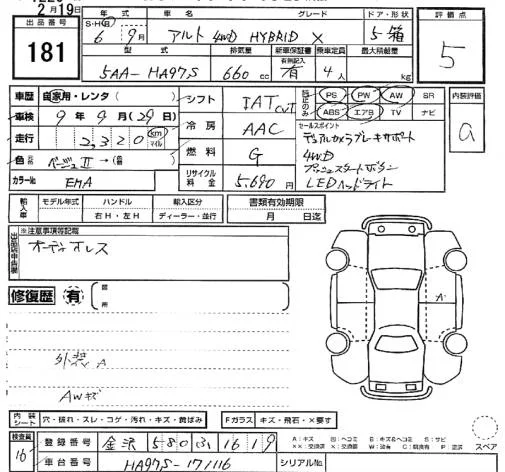 2月19日
出品番号
181
年式 車名 グレード ドア・形状 評価点
S・H・R
6年9月 アルト 4WD HYBRID X 5箱
5
型式 排気量 新車保証書 乗車定員 最大積載量
有無記入
5AA-HA97S 660cc 有 4人 kg
車歴 自家用・レンタ( )
車検 9年9月(29日)
走行 2,320 km マイル
色 ベージュⅡ→( )
カラーNo. EMA
シフト IAT CVT
冷房 AAC
燃料 G
リサイクル料金 5,690円
純正のみ
PS PW AW SR
ABS エアB TV ナビ
セールスポイント
デュアルカメラブレーキサポート
4WD
プッシュスタートボタン
LEDヘッドライト
内装評価
a
輸入車 モデル年式 ハンドル 輸入区分 書類有効期限
右H・左H ディーラー・並行 月 日迄
出品店申告欄
※注意事項等記載
オーディオレス
修復歴 有
箇所
A
外装A
AWキズ
内装シート 穴・破れ・スレ・コゲ・汚れ・キズ・黄ばみ Fガラス キズ・飛石・×要す
検査員 16
登録番号 金沢 580 い 1619
車台番号 HA97S-171116 シリアルNo.
A:キズ U:ヘコミ B:キズ&ヘコミ S:サビ
スペア